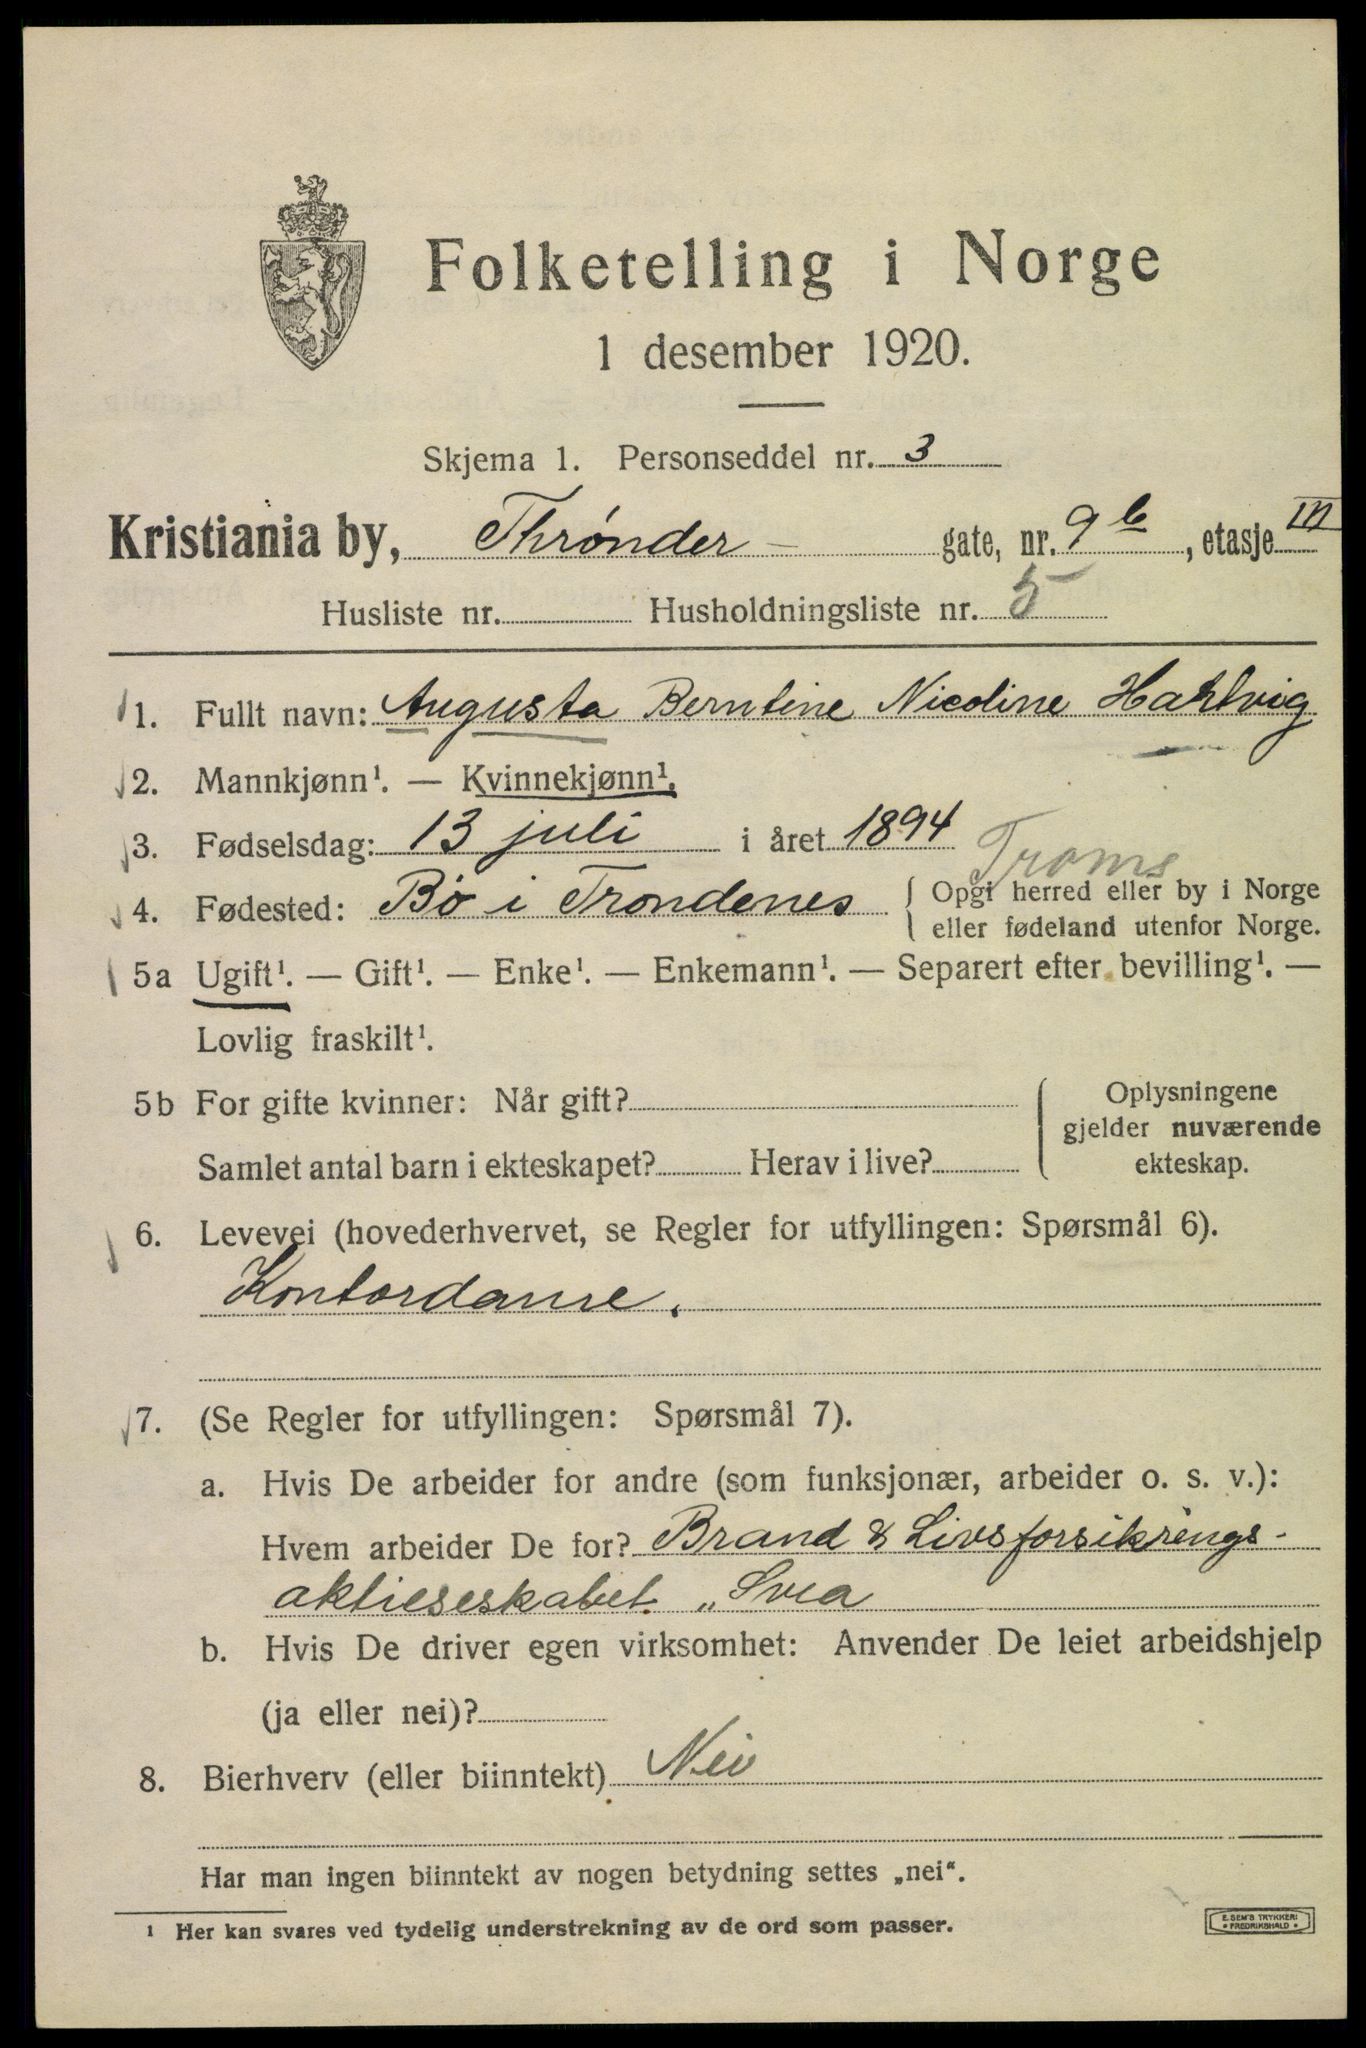 Folketelling i Norge
1 desember 1920.
Skjema 1. Personseddel nr. 3
Kristiania by, Thrønder- gate, nr. 9 b, etasje III
Husliste nr. Husholdningsliste nr. 5
1. Fullt navn: Augusta Berntine Nicoline Hartvig
2. Mannkjønn¹. — Kvinnekjønn¹.
3. Fødselsdag: 13 juli i året 1894
Troms
4. Fødested: Bø i Trondenes { Opgi herred eller by i Norge
eller fødeland utenfor Norge.
5a Ugift¹. — Gift¹. — Enke¹. — Enkemann¹. — Separert efter bevilling¹. —
Lovlig fraskilt¹.
5b For gifte kvinner: Når gift?
Samlet antal barn i ekteskapet? Herav i live?
Oplysningene
gjelder nuværende
ekteskap.
6. Levevei (hovederhvervet, se Regler for utfyllingen: Spørsmål 6).
Kontordame.
7. (Se Regler for utfyllingen: Spørsmål 7).
a. Hvis De arbeider for andre (som funksjonær, arbeider o. s. v.):
Hvem arbeider De for? Brand & Livsforsikrings-
aktieselskabet „Svea
b. Hvis De driver egen virksomhet: Anvender De leiet arbeidshjelp
(ja eller nei)?
8. Bierhverv (eller biinntekt) Nei
Har man ingen biinntekt av nogen betydning settes „nei“.
¹ Her kan svares ved tydelig understrekning av de ord som passer.
E. SEM'S TRYKKERI
• FREDRIKSHALD •